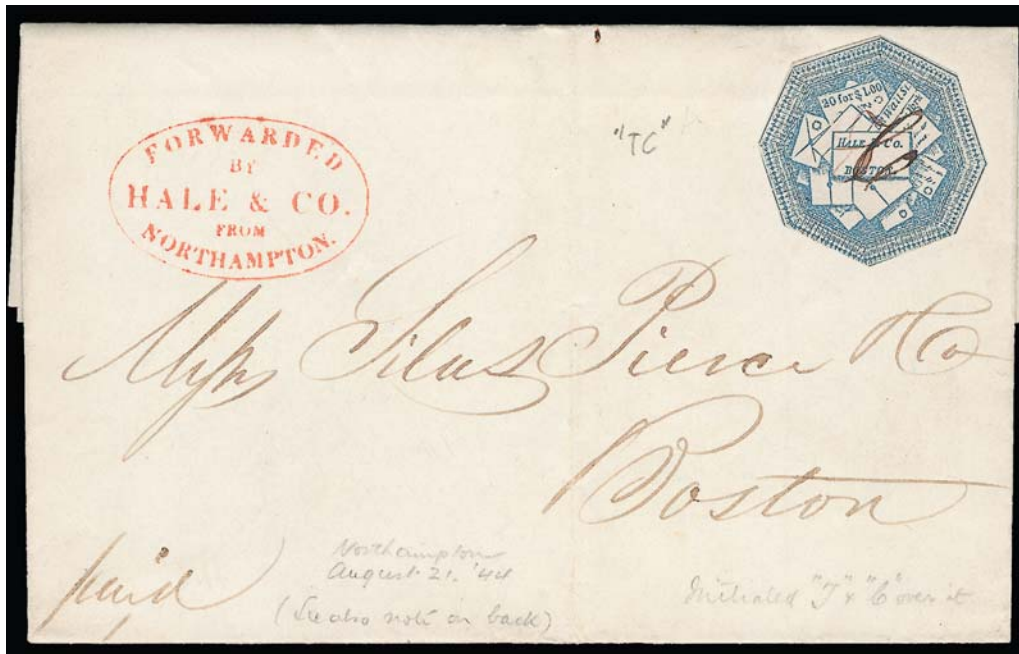 FORWARDED
BY
HALE & CO.
FROM
NORTHAMPTON.
"TC"
20 for $1.00
HALE & Co.
BOSTON.
Messrs Silas Pierce & Co
Boston
paid
Northampton
August 21. '44
(See also note on back)
Initialed "T" & "C" over it